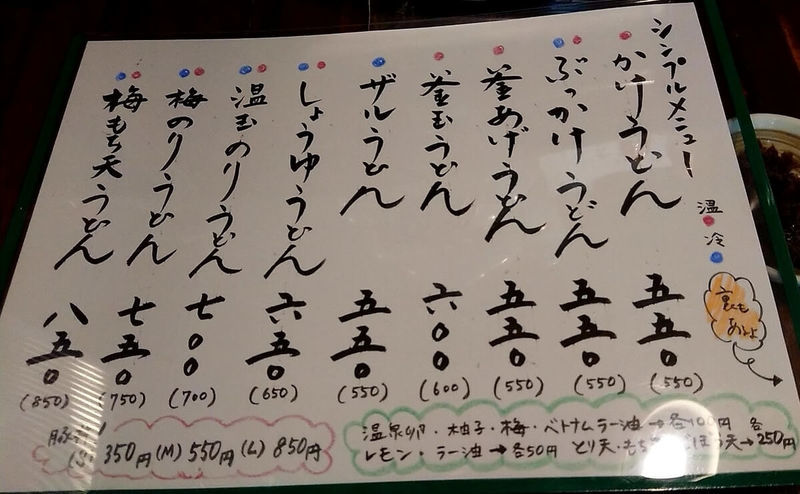 シンプルメニュー!
かけうどん 五五0 (550)
ぶっかけうどん 五五0 (550)
釜あげうどん 五五0 (550)
釜玉うどん 六00 (600)
ザルうどん 五五0 (550)
しょうゆうどん 六五0 (650)
温玉のりうどん 七00 (700)
梅のりうどん 七五0 (750)
梅もち天うどん 八五0 (850)
温
冷
裏も
あるよ
温泉卵・柚子・梅・ベトナムラー油→各100円
レモン・ラー油→各50円 とり天・もち ごぼう天→各250円
(S) 350円 (M) 550円 (L) 850円